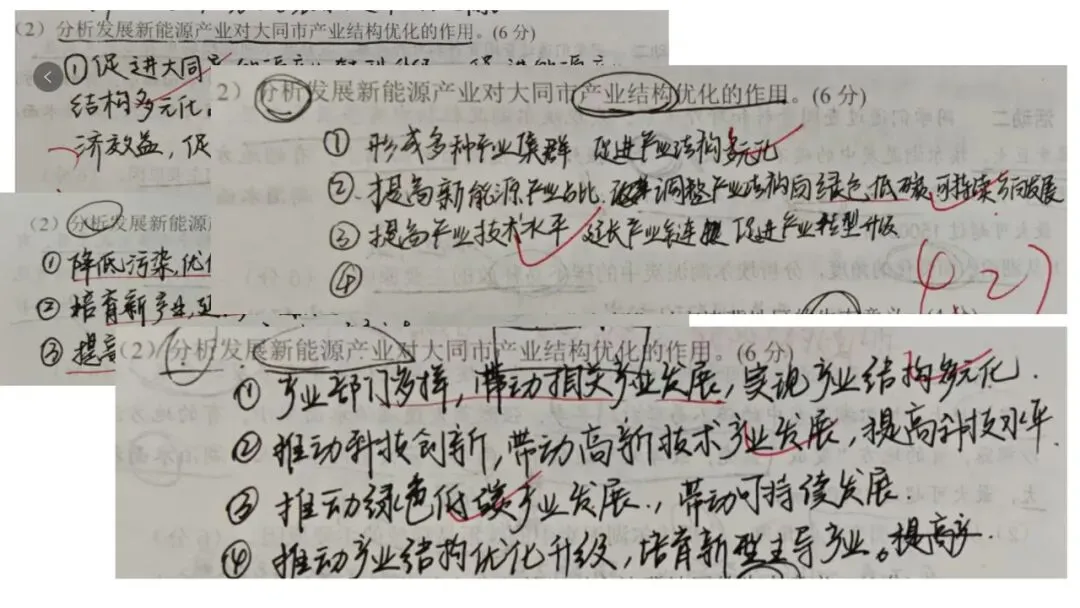 (2) 分析发展新能源产业对大同市产业结构优化的作用。(6 分)
①促进大同
结构多元化,
济效益,促
2) 分析发展新能源产业对大同市产业结构优化的作用。(6 分)
① 形成多种产业集群 促进产业结构多元化
②.提高新能源产业占比,调整产业结构向绿色,低碳,可持续方向发展
③ 提高产业技术水平 延长产业链 促进产业转型升级
④
(2) 分析发展新能源
① 降低污染,优化
② 培育新产业,
③ 提高
(2) 分析发展新能源产业对大同市产业结构优化的作用。(6 分)
① 产业部门多样,带动相关产业发展,实现产业结构多元化.
② 推动科技创新,带动高新技术产业发展,提高科技水平.
③ 推动绿色低碳产业发展.,带动可持续发展.
④ 推动产业结构优化升级,培育新型主导产业。提高产